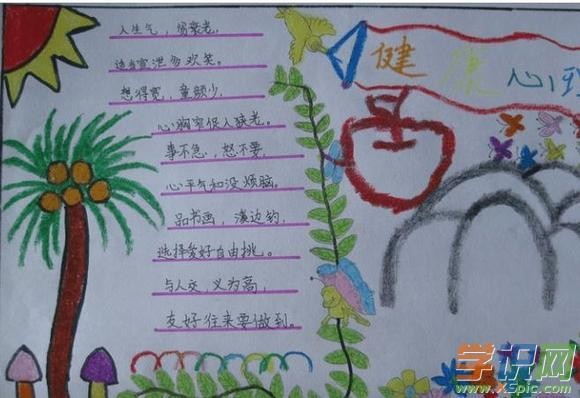 人生气，易衰老，
适当宣泄多欢笑。
想得宽，童颜少，
心胸窄促人衰老。
事不急，怒不要，
心平气和没烦脑。
品书画，溪边钓，
选择爱好自由挑。
与人交，义为高，
友好往来要做到。
健康心理
学识网
www.xspic.com